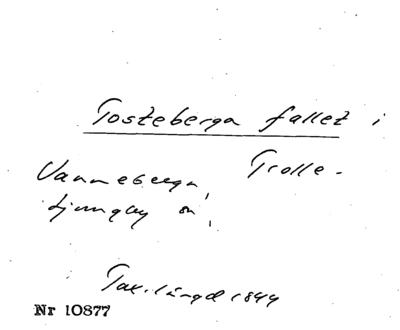 Tosteberga fallet i
Vanneberga, Trolle-
Ljungby sn,
Tax.längd 1844
Nr 10877